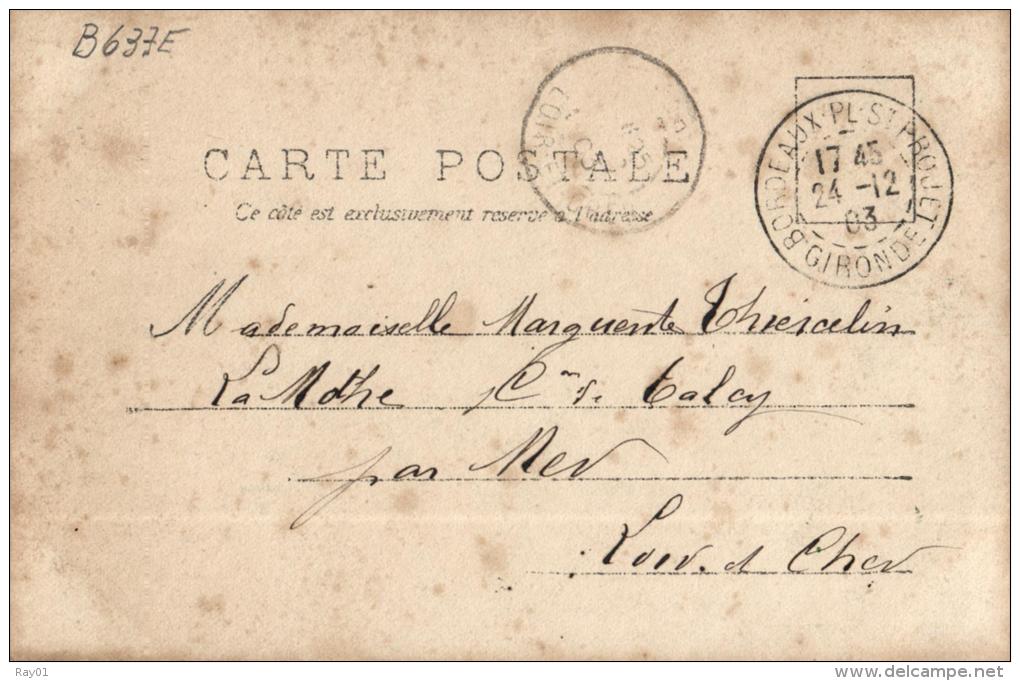 B637E
CARTE POSTALE
Ce côté est exclusivement réservé à l'adresse
BORDEAUX·PL·ST PROJET
17 45
24 -12
03
GIRONDE
LOIR-ET-CHER
Mademoiselle Marguerite Thiercelin
La Mothe Cne de Talcy
par Mer
Loir et Cher
Ray01
www.delcampe.net